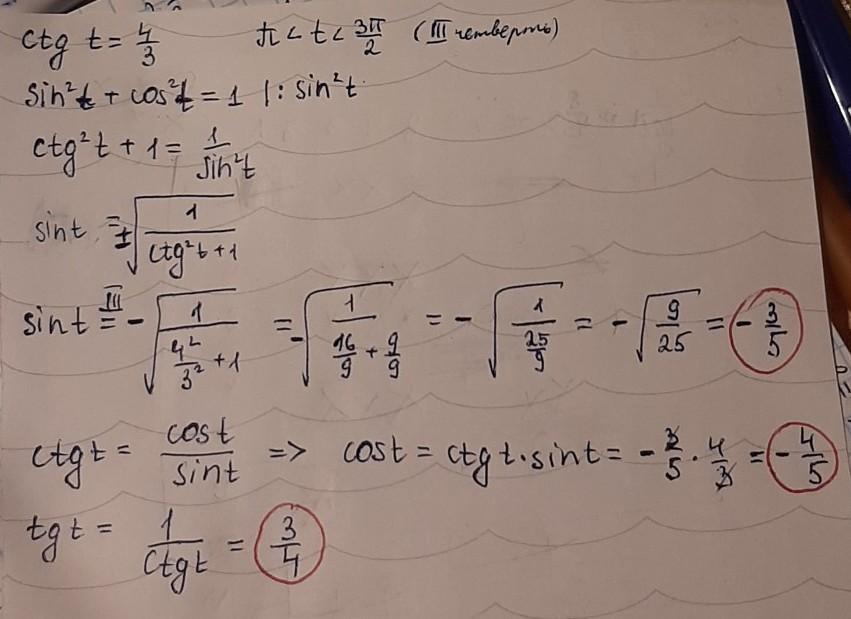 ctg t = 4/3 π < t < 3π/2 (III четверть)
sin²t + cos²t = 1 |: sin²t
ctg²t + 1 = 1/sin²t
sin t = ±√(1/(ctg²t + 1))
sin t =^III -√(1/(4²/3² + 1)) = -√(1/(16/9 + 9/9)) = -√(1/(25/9)) = -√(9/25) = -3/5
ctg t = cos t/sin t => cos t = ctg t · sin t = -3/5 · 4/3 = -4/5
tg t = 1/ctg t = 3/4